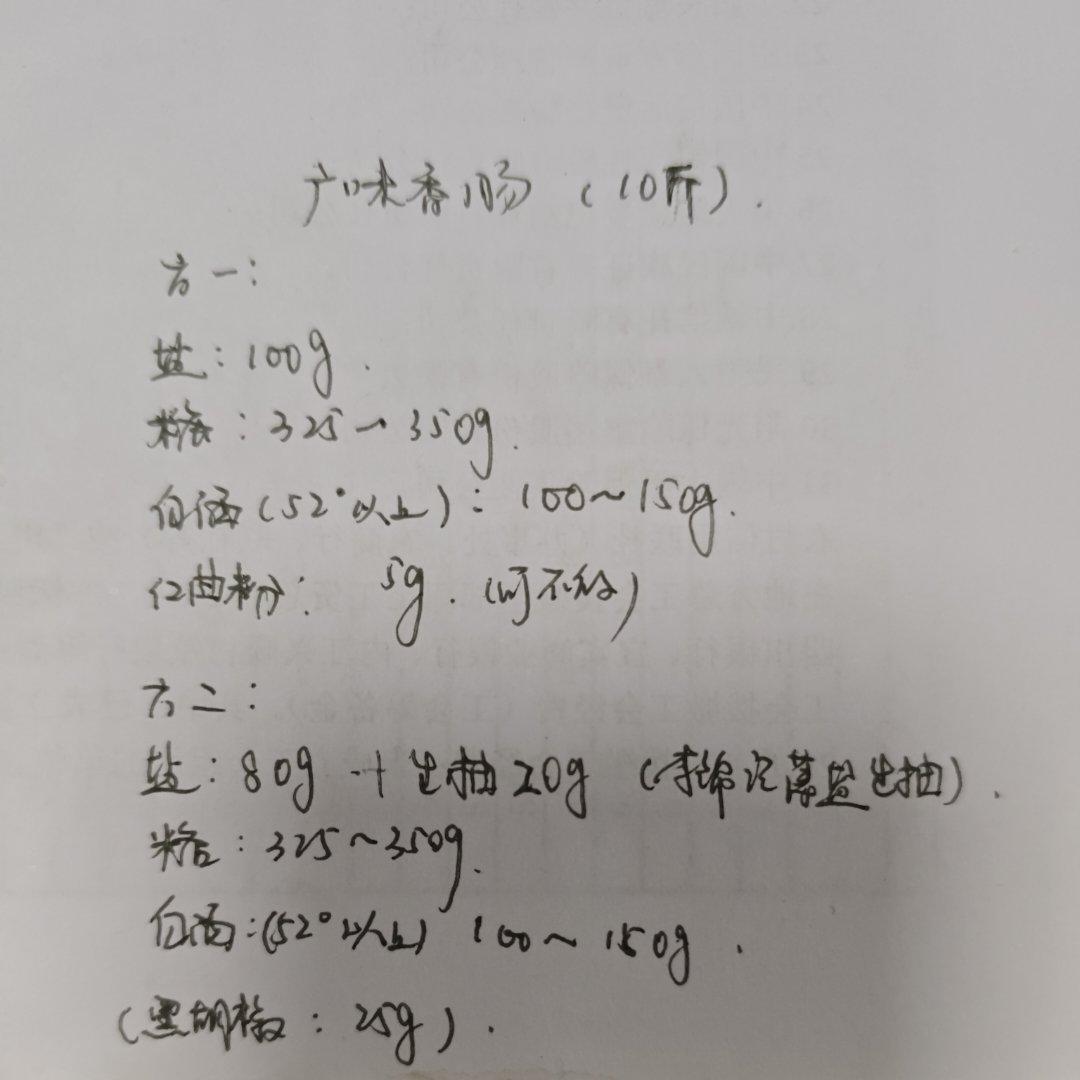 广味香肠（10斤）.
方一：
盐：100g.
糖：325~350g.
白酒（52°以上）：100~150g.
红曲粉：5g.（可不放）
方二：
盐：80g+生抽20g（李锦记薄盐生抽）.
糖：325~350g.
白酒：（52°以上）100~150g.
（黑胡椒：25g）.